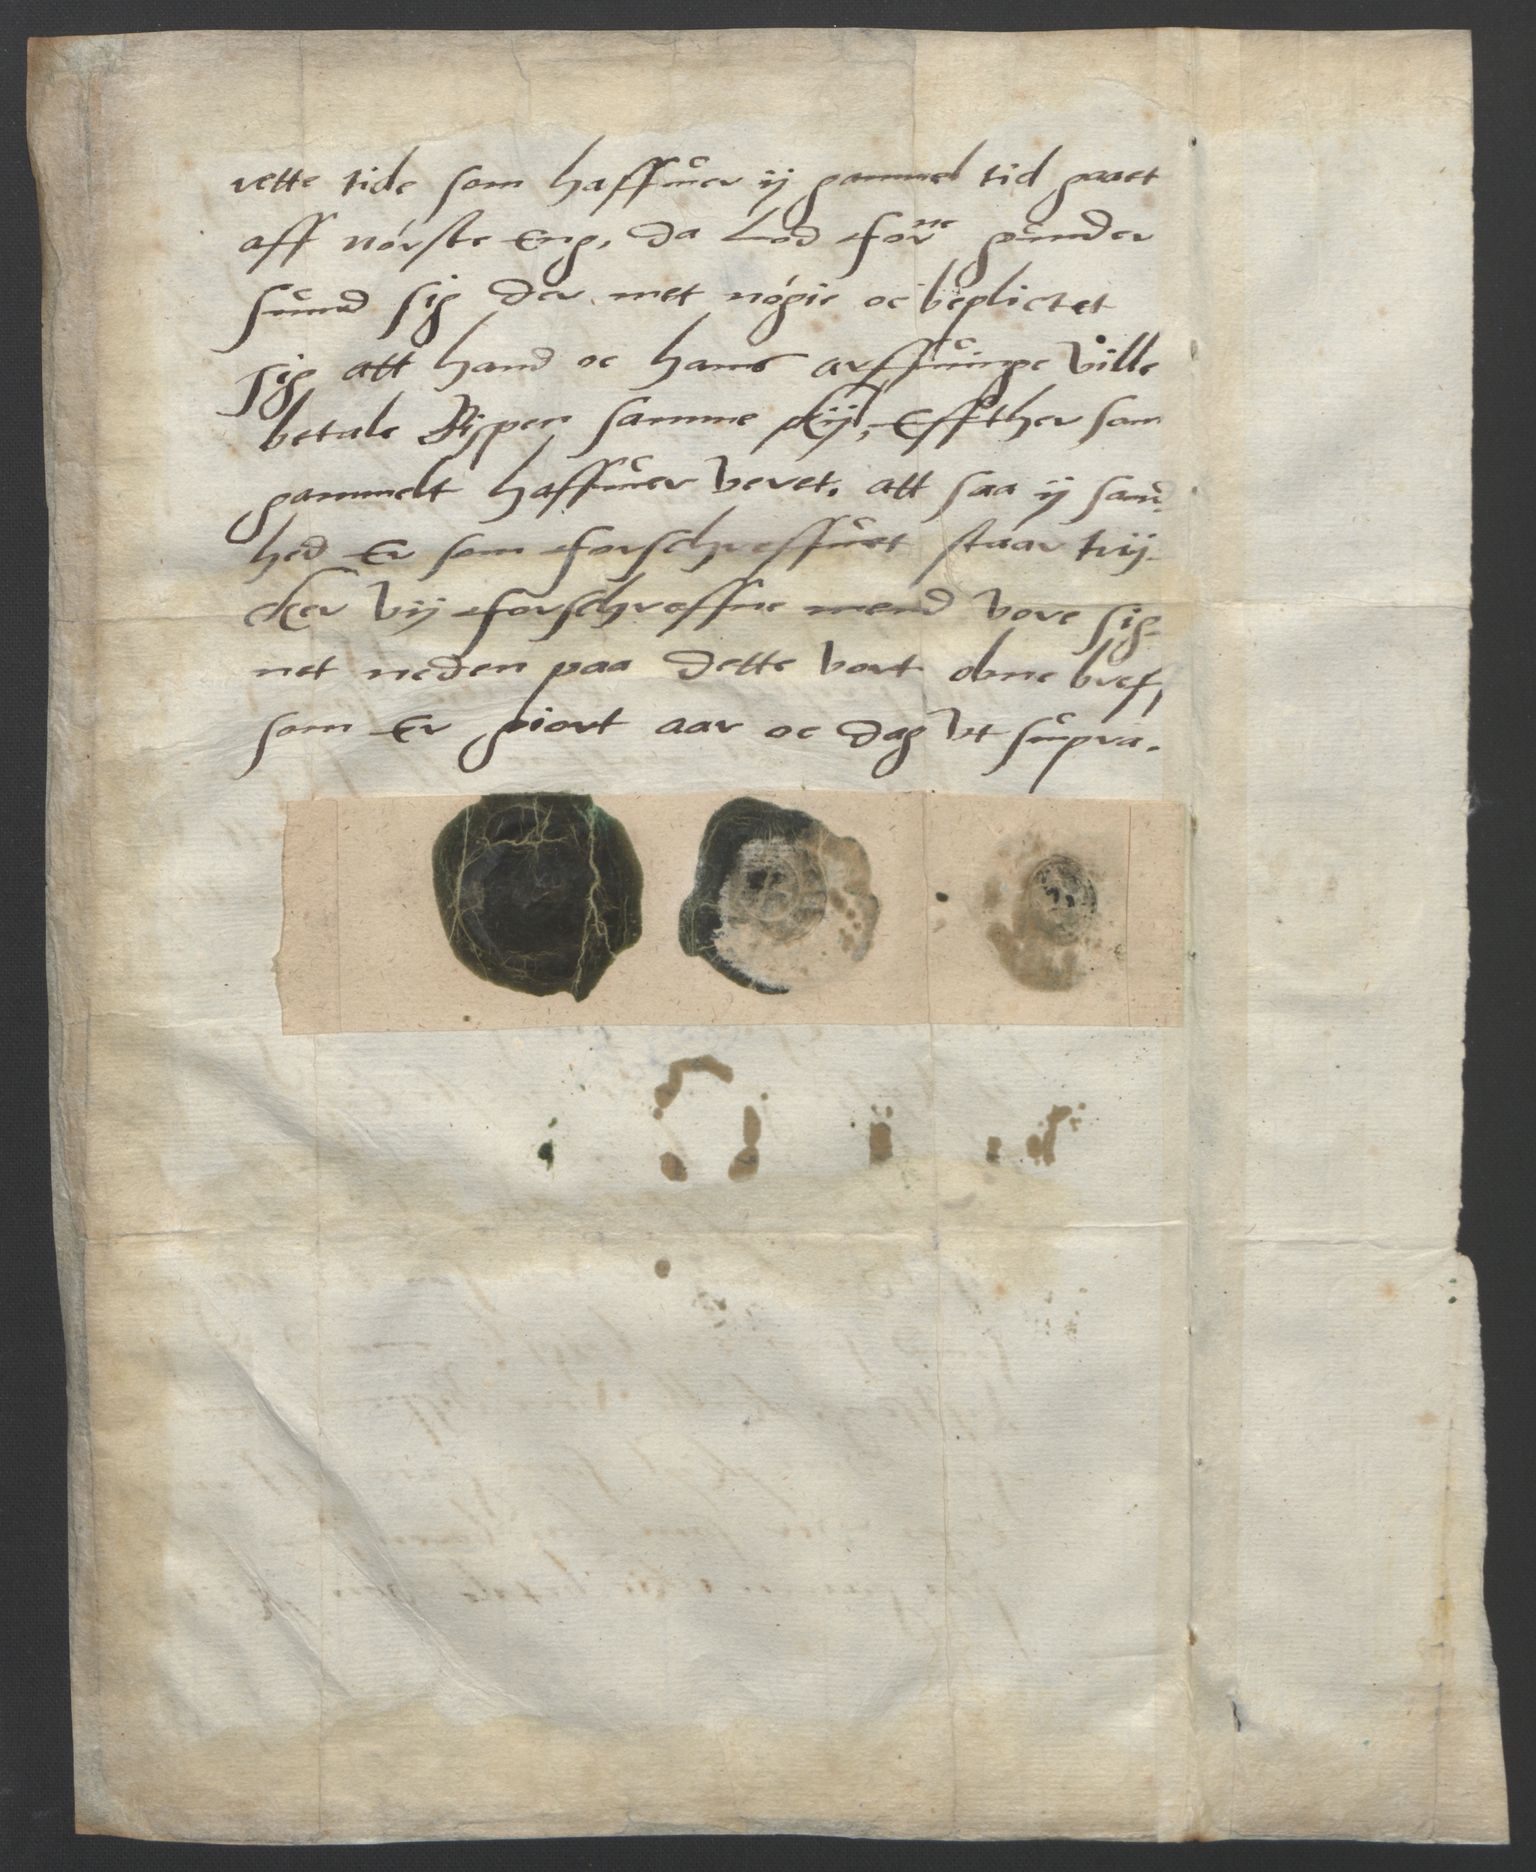 rette tide som haffuer ij gammel tid gaaet
aff nörste Eng, da Lod forne gunder
sund sig der met nögie oc beplictet
sig att hand oc hans arffuinge ville
betale Bispen samme skijl, Effther som
gammelt haffuer veret. att saa ij sand
hed Er som forschreffuet staar trij-
cker vij forschreffne mend vore sig-
net neden paa dette vort obne bref,
som Er giort aar oc dag vt supra.